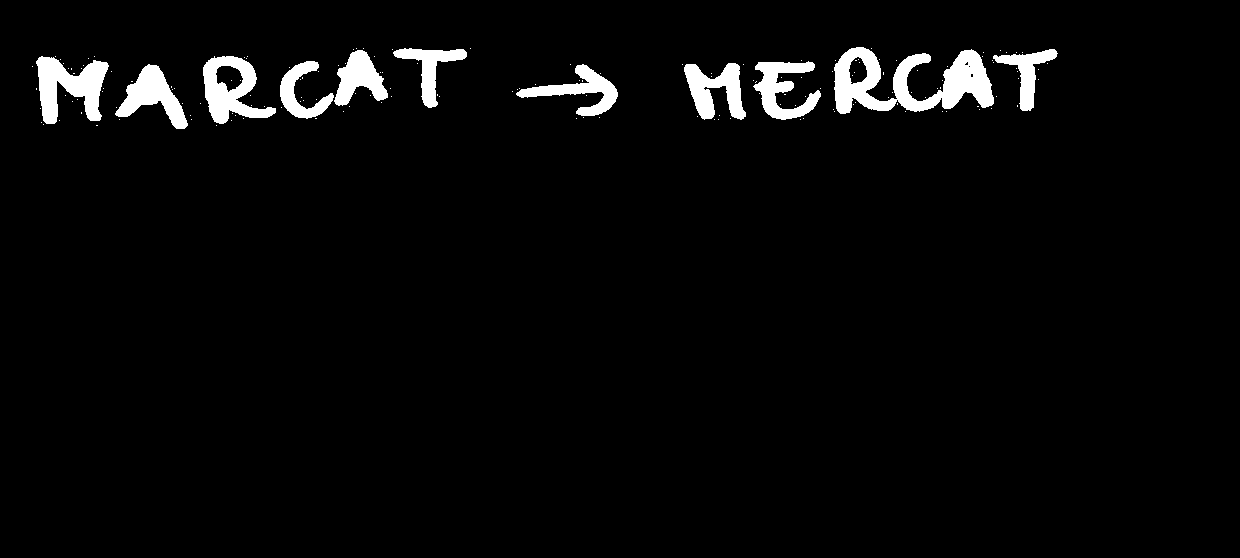 MARCAT → MERCAT